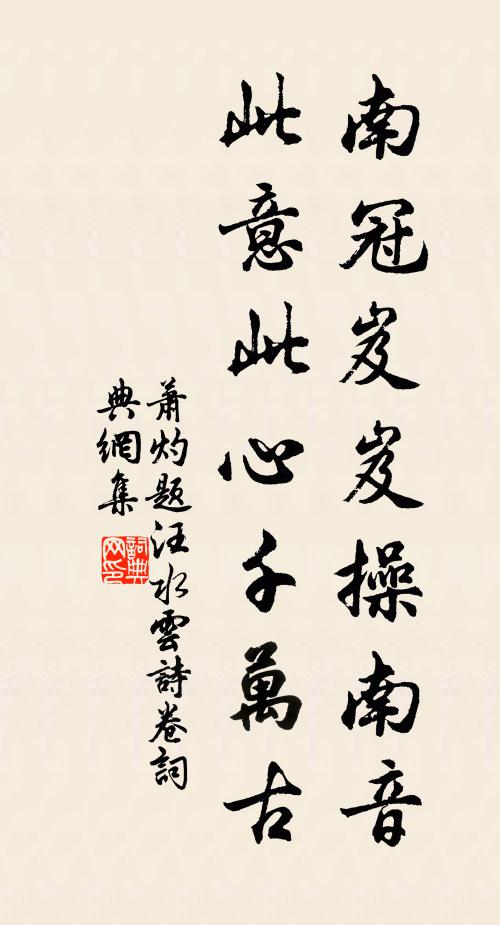 南冠岌岌操南音
此意此心千萬古
蕭灼題汪水雲詩卷詞
典網集
詞典
网印